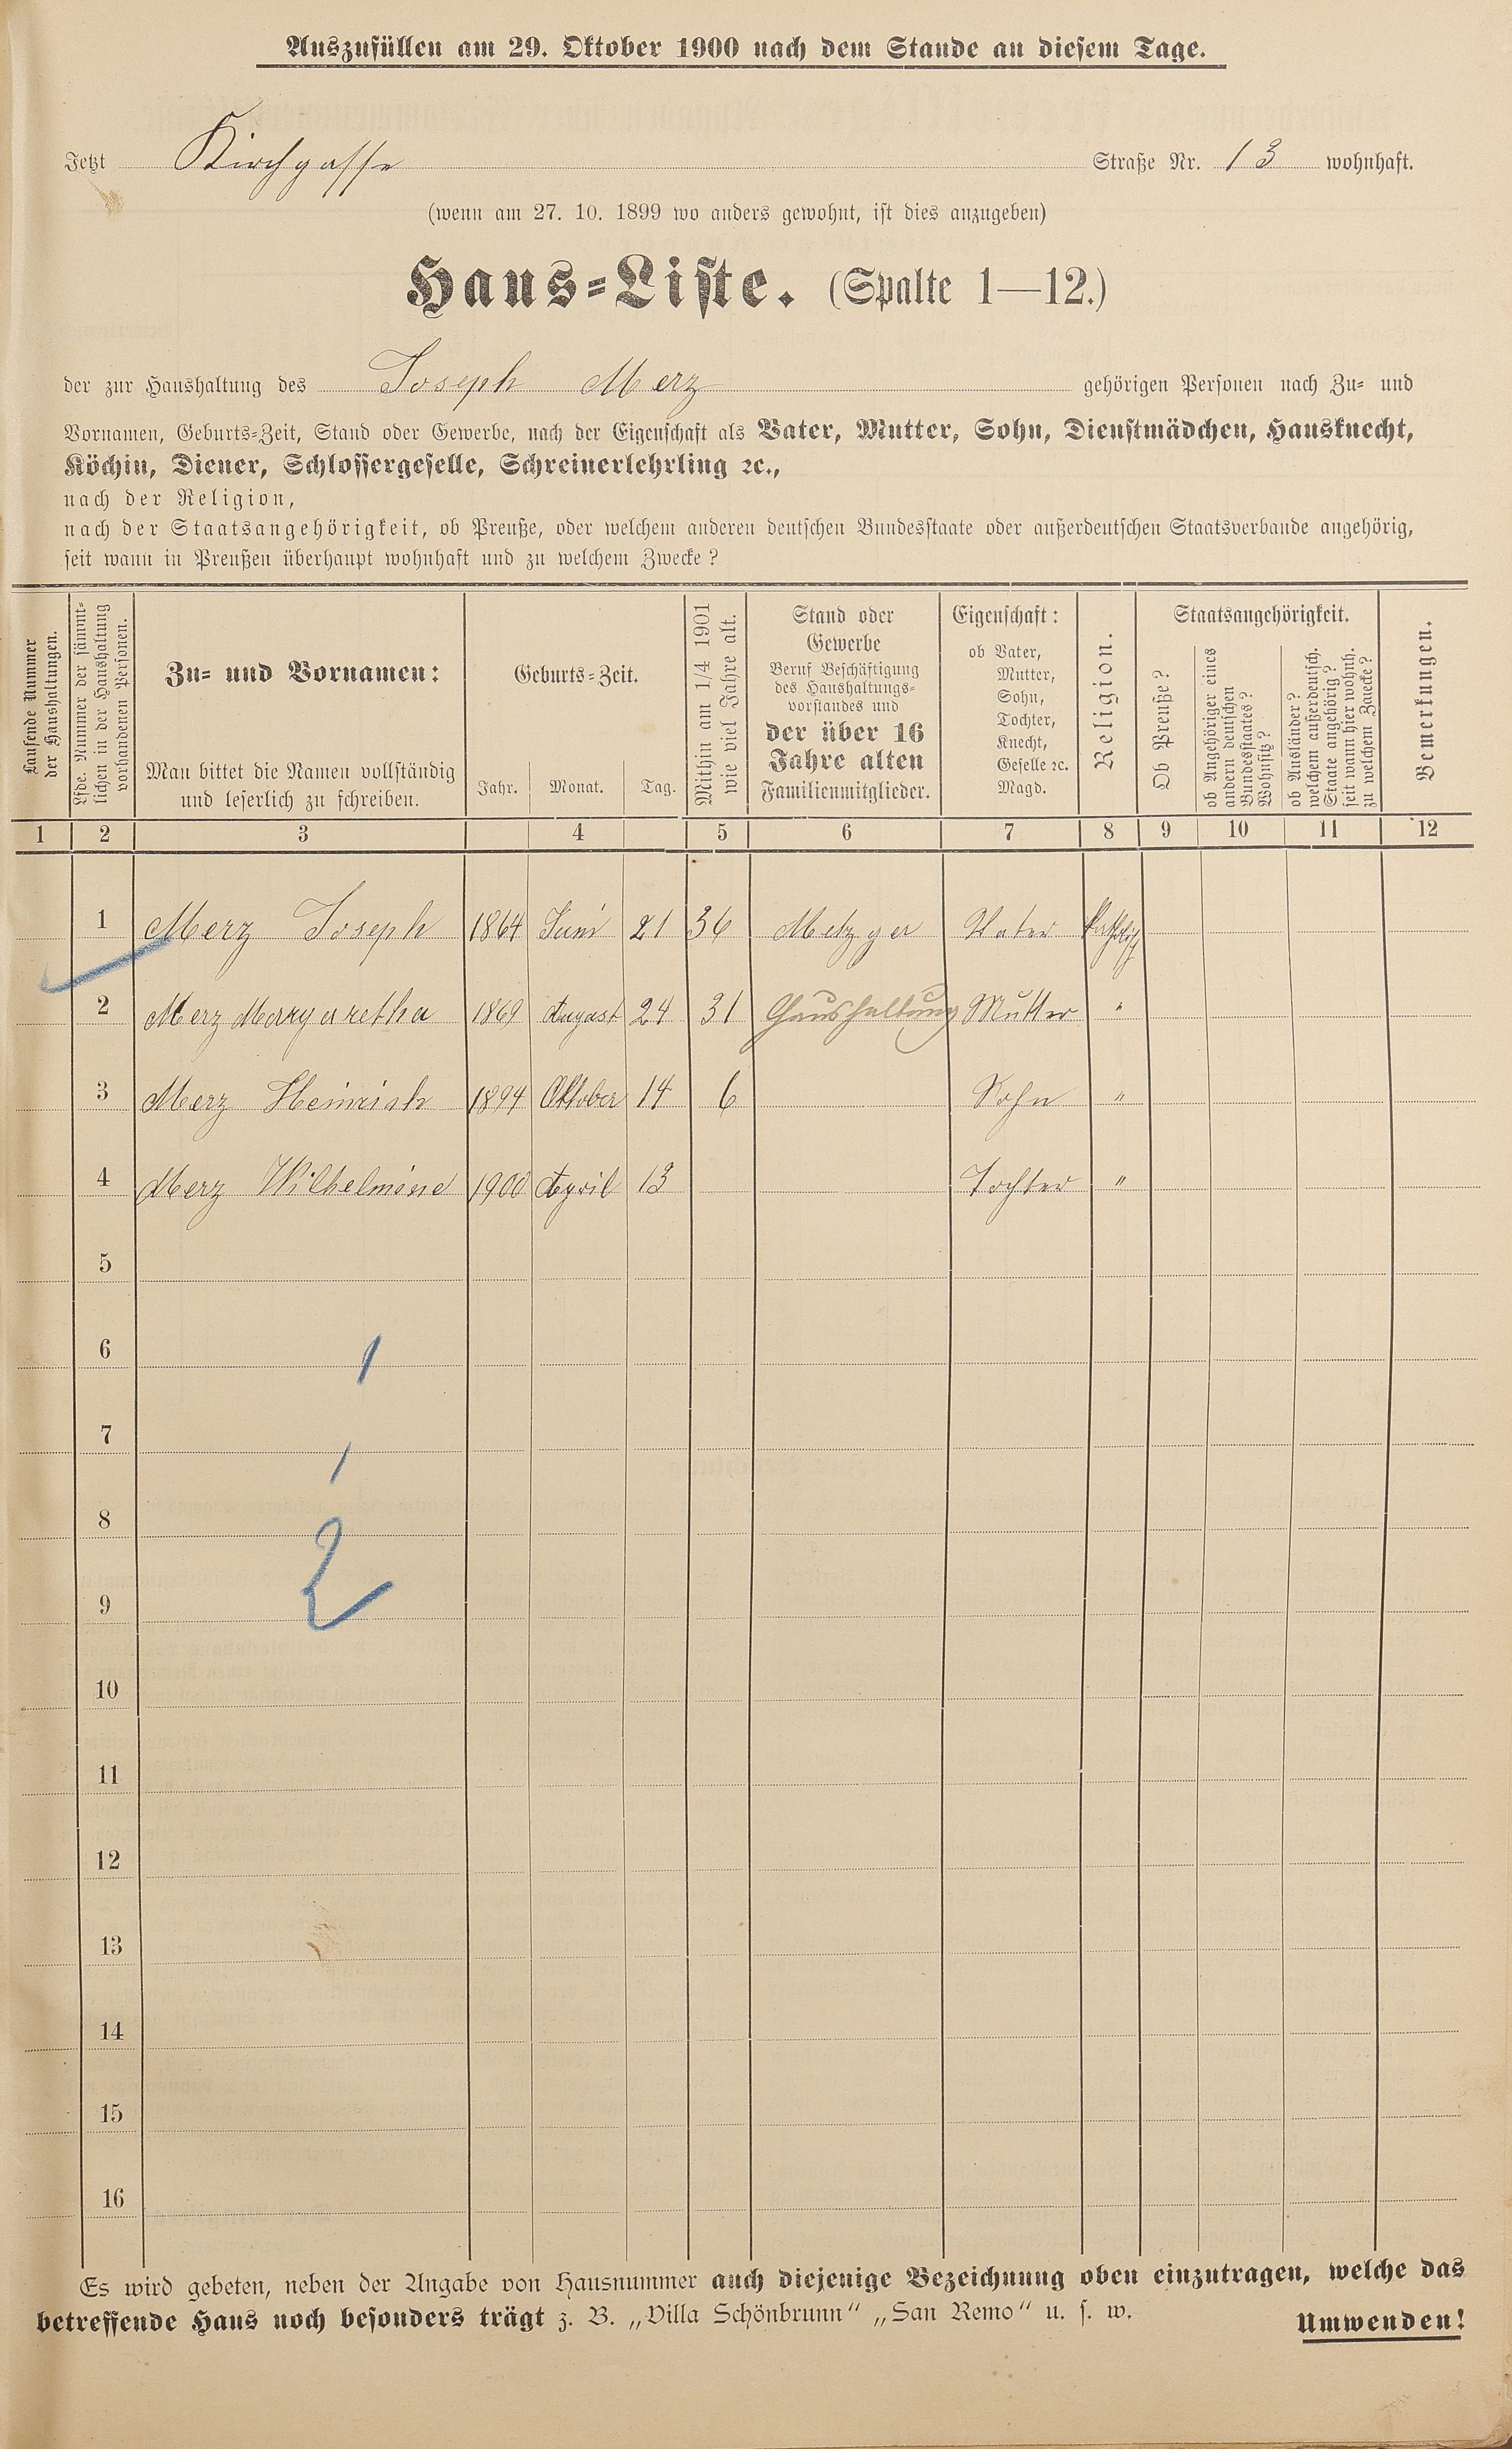 Auszufüllen am 29. Oktober 1900 nach dem Stande an diesem Tage.
Jetzt Kirchgasse Straße Nr. 13 wohnhaft.
(wenn am 27. 10. 1899 wo anders gewohnt, ist dies anzugeben)
Haus-Liste. (Spalte 1—12.)
der zur Haushaltung des Joseph Merz gehörigen Personen nach Zu- und
Vornamen, Geburts-Zeit, Stand oder Gewerbe, nach der Eigenschaft als Vater, Mutter, Sohn, Dienstmädchen, Hausknecht,
Köchin, Diener, Schlossergeselle, Schreinerlehrling ꝛc.,
nach der Religion,
nach der Staatsangehörigkeit, ob Preuße, oder welchem anderen deutschen Bundesstaate oder außerdeutschen Staatsverbande angehörig,
seit wann in Preußen überhaupt wohnhaft und zu welchem Zwecke?
Laufende Nummer
der Haushaltungen.
Lfde. Nummer der sämmt-
lichen in der Haushaltung
vorhandenen Personen.
Zu- und Vornamen:
Man bittet die Namen vollständig
und leserlich zu schreiben.
Geburts-Zeit.
Jahr. Monat. Tag.
Mithin am 1/4 1901
wie viel Jahre alt.
Stand oder
Gewerbe
Beruf Beschäftigung
des Haushaltungs-
vorstandes und
der über 16
Jahre alten
Familienmitglieder.
Eigenschaft:
ob Vater,
Mutter,
Sohn,
Tochter,
Knecht,
Geselle ꝛc.
Magd.
Religion.
Staatsangehörigkeit.
Ob Preuße?
ob Angehöriger eines
andern deutschen
Bundesstaates?
Wohnsitz?
ob Ausländer?
welchem außerdeutsch.
Staate angehörig?
seit wann hier wohnh.
zu welchem Zwecke?
Bemerkungen.
1 2 3 4 5 6 7 8 9 10 11 12
1 Merz Joseph 1864 Juni 21 36 Metzger Vater katholisch
2 Merz Margaretha 1869 August 24 31 Haushaltung Mutter "
3 Merz Heinrich 1894 Oktober 14 6 Sohn "
4 Merz Wilhelmine 1900 April 13 Tochter "
5
6 1
7 1
8
2
9
10
11
12
13
14
15
16
Es wird gebeten, neben der Angabe von Hausnummer auch diejenige Bezeichnung oben einzutragen, welche das
betreffende Haus noch besonders trägt z. B. „Villa Schönbrunn“ „San Remo“ u. s. w. Umwenden!